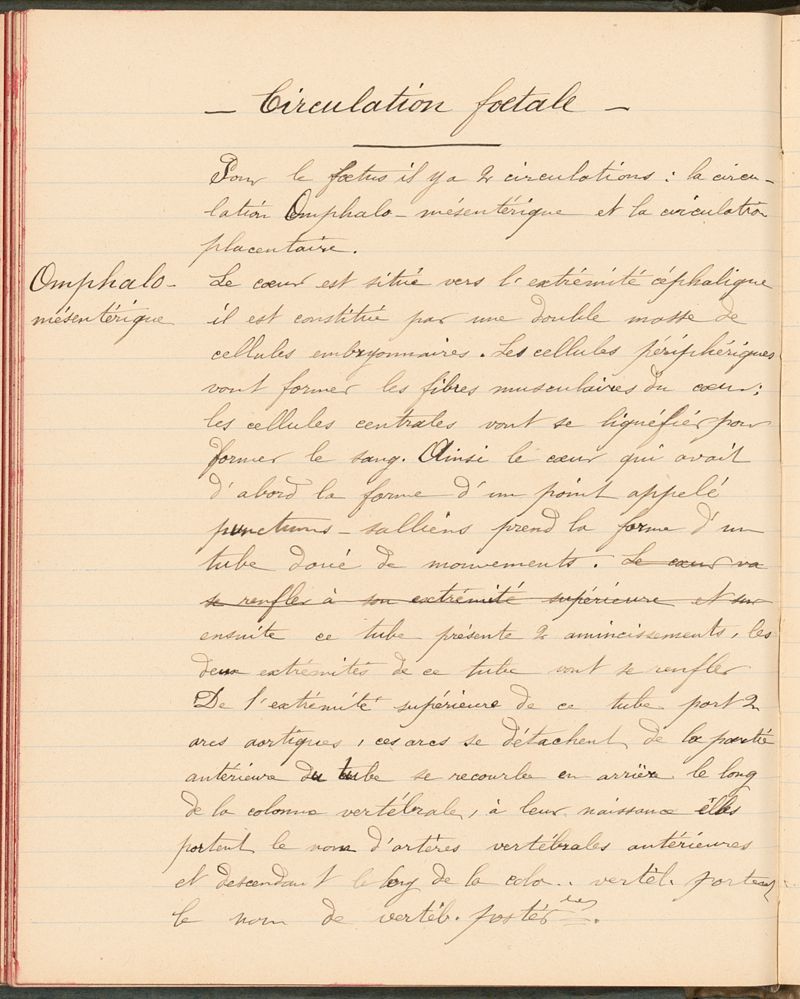 — Circulation fœtale —
Pour le fœtus il y a 2 circulations : la circu-
lation Omphalo-mésentérique et la circulation
placentaire.
Omphalo-
mésentérique
Le cœur est situé vers l'extrémité céphalique
il est constitué par une double masse de
cellules embryonnaires. Les cellules périphériques
vont former les fibres musculaires du cœur ;
les cellules centrales vont se liquéfier pour
former le sang. Ainsi le cœur qui avait
d'abord la forme d'un point appelé
punctums-salliens prend la forme d'un
tube doué de mouvements. Le cœur va
se renfler à son extrémité supérieure et sur
ensuite ce tube présente 2 amincissements, les
deux extrémités de ce tube vont se renfler
De l'extrémité supérieure de ce tube part 2
arcs aortiques, ces arcs se détachent de la partie
antérieure du tube se recourbe en arrière le long
de la colonne vertébrale, à leur naissance elles
portent le nom d'artères vertébrales antérieures
et descendant le long de la colo.. vertéb. portent
le nom de vertéb. postér res.